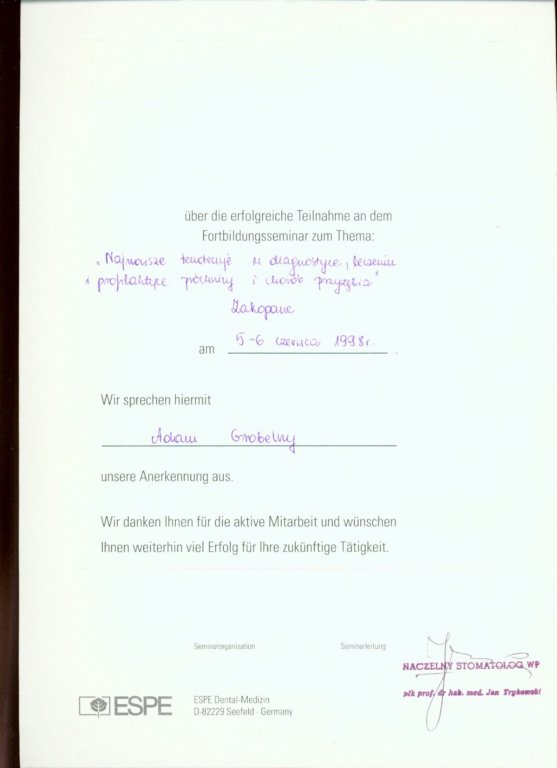 über die erfolgreiche Teilnahme an dem
Fortbildungsseminar zum Thema:
"Najnowsze tendencje w diagnostyce, leczeniu
i profilaktyce próchnicy i chorób przyzębia"
Zakopane
am 5-6 czerwca 1998r.
Wir sprechen hiermit
Adam Grobelny
unsere Anerkennung aus.
Wir danken Ihnen für die aktive Mitarbeit und wünschen
Ihnen weiterhin viel Erfolg für Ihre zukünftige Tätigkeit.
Seminarorganisation
Seminarleitung
NACZELNY STOMATOLOG WP
płk prof. dr hab. med. Jan Trykowski
ESPE
ESPE Dental-Medizin
D-82229 Seefeld · Germany